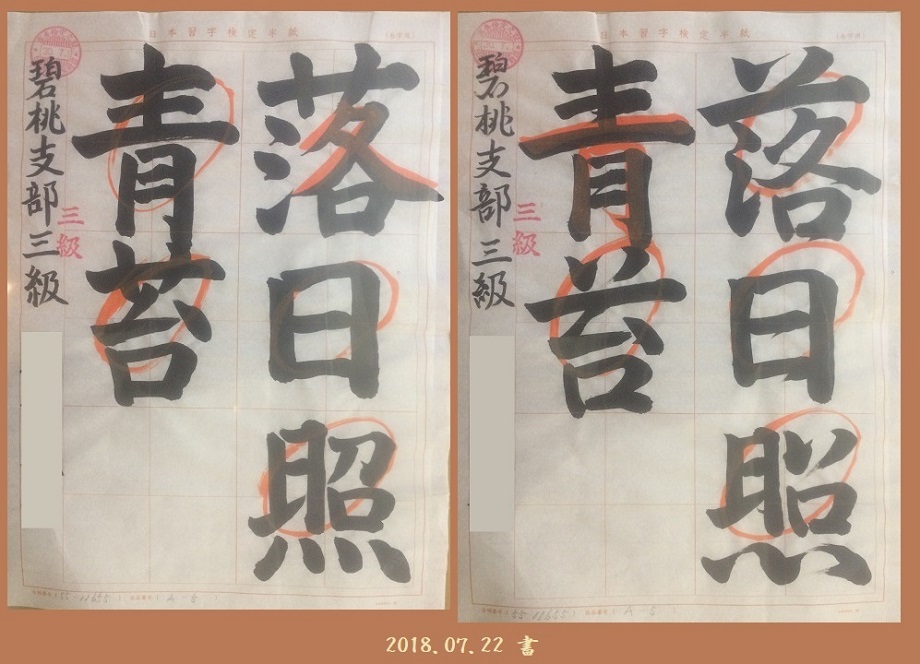 日本習字検定半紙
落日照
青苔
三級
碧桃支部三級
日本習字検定半紙
落日照
青苔
三級
碧桃支部三級
2018.07.22 書